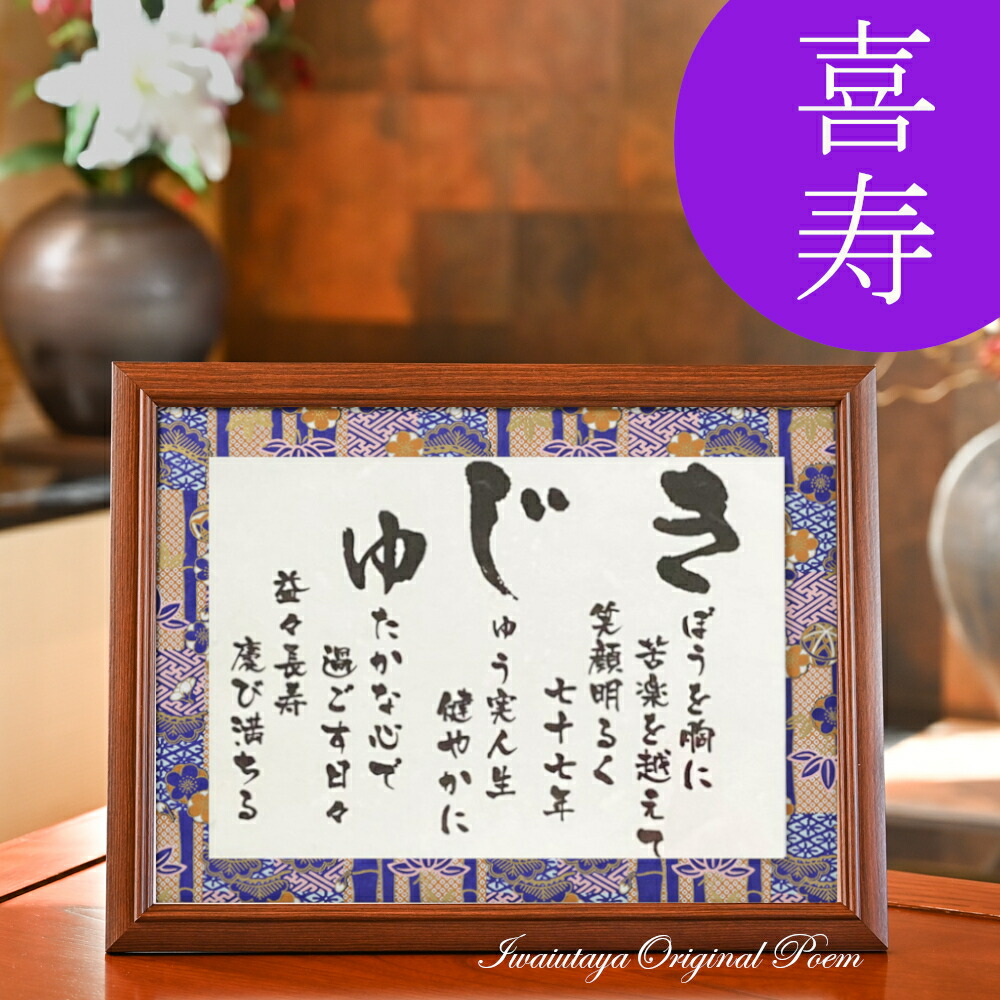 喜寿
きぼうを胸に
苦楽を越えて
笑顔明るく
七十七年
じゅう実人生
健やかに
ゆたかな心で
過ごす日々
益々長寿
慶び満ちる
Iwaiutaya Original Poem